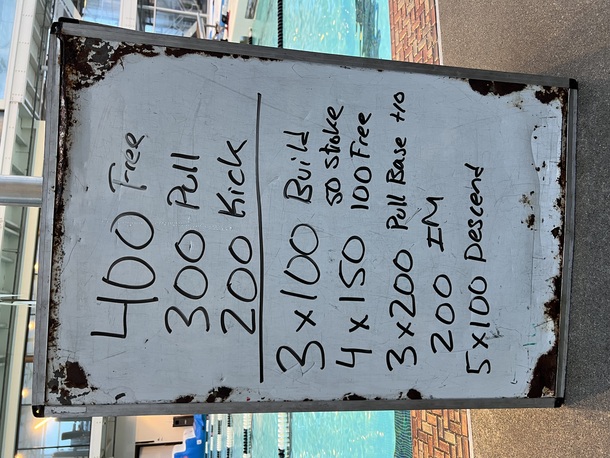 400 Free
300 Pull
200 Kick
3 x 100 Build
50 stoke
4 x 150 100 Free
3 x 200 Pull Base +10
200 IM
5x100 Descend